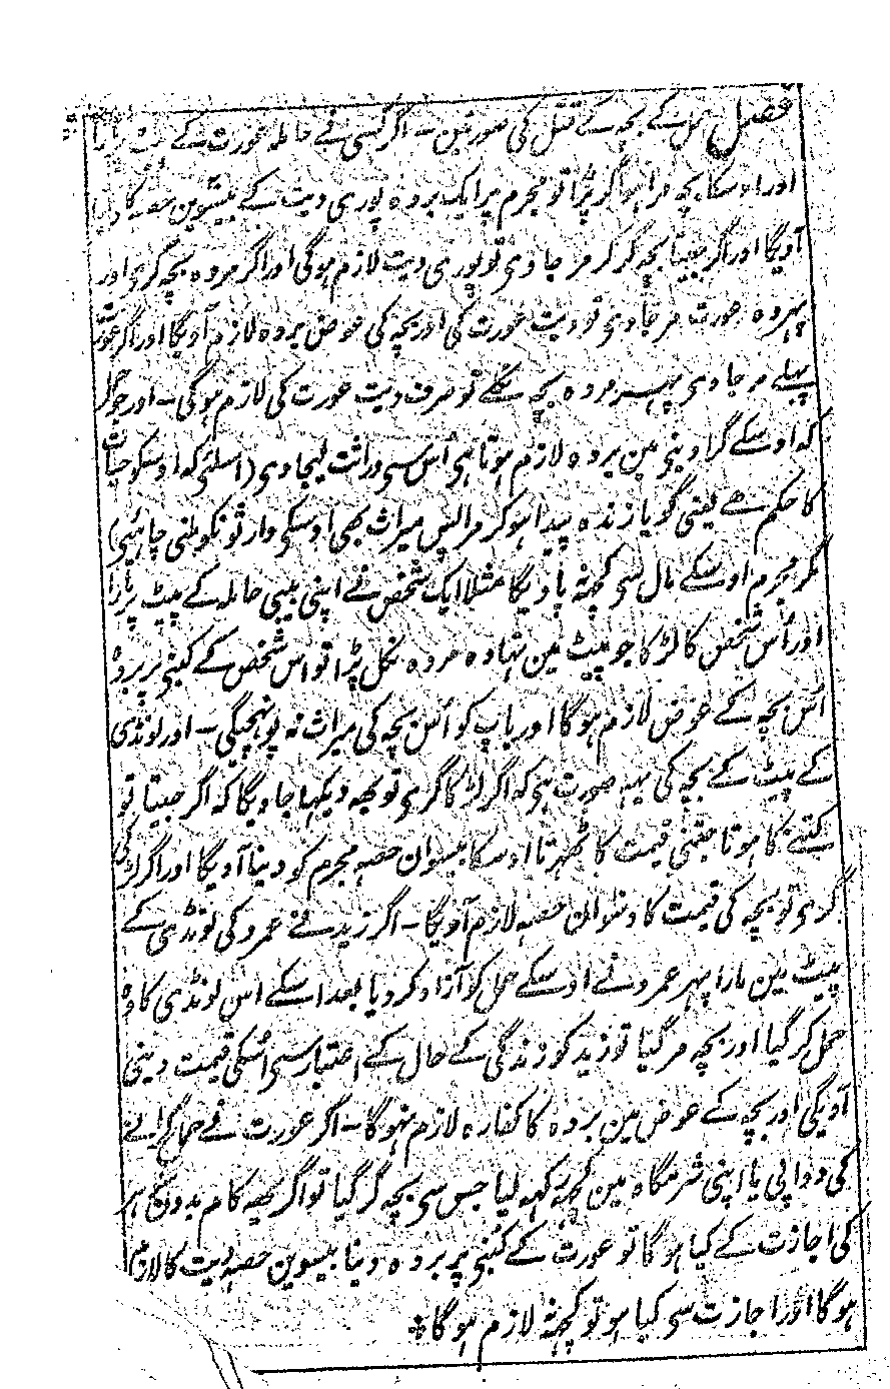 فصل حمل کے بچہ کے قتل کی صورتین ۔ اگر کسی نے حاملہ عورت کے پیٹ پر مارا
اور اوسکا بچہ مرا ہوا گر پڑا تو مجرم پر ایک بردہ پوری دیت کے بیسوین حصہ کا دینا
آویگا اور اگر جیتا بچہ گر کر مر جاوی تو پوری دیت لازم ہوگی اور اگر مردہ بچہ گری اور
پہر وہ عورت مر جاوی تو دیت عورت کی اور بچہ کی عوض بردہ لازم آویگا اور اگر عورت
پہلے مر جاوی پہر مردہ بچہ نکلے تو صرف دیت عورت کی لازم ہوگی ۔ اور جو
کہ اوسکے گرا دینی مین بردہ لازم ہوتا ہی اُس سی وراثت لیجاوی (اسلئی کہ اوسکو حیات
کا حکم ہے یعنی گویا زندہ پیدا ہو کر مرا پس میراث بھی اوسکی وارثونکو ملنی چاہئیی)
مگر مجرم اوسکے مال سی کچھہ نہ پاویگا مثلا ایک شخص نے اپنی بیبی حاملہ کے پیٹ پر مارا
اور اُس شخص کا لڑکا جو پیٹ مین تھا وہ مردہ نکل پڑا تو اس شخص کے کنبی پر بردہ
اُس بچہ کے عوض لازم ہوگا اور باپ کو اُس بچہ کی میراث نہ پونہچیگی ۔ اور لونڈی
کے پیٹ کے بچہ کی یہہ صورت ہی کہ اگر لڑکا گری تو یہہ دیکہا جاویگا کہ اگر جیتا تو
کتنے کا ہوتا جتنی قیمت کا ٹھہرتا اوسکا بیسوان حصہ مجرم کو دینا آویگا اور اگر لڑکی
گری تو بچہ کی قیمت کا دسوان حصہ لازم آویگا ۔ اگر زید نے عمرو کی لونڈی کے
پیٹ مین مارا پہر عمرو نے اوسکے حمل کو آزاد کر دیا بعد اسکے اس لونڈی کا وہ
حمل گر گیا اور بچہ مر گیا تو زید کو زندگی کے حال کے اعتبار سی اُسکی قیمت دینی
آویگی اور بچہ کے عوض مین بردہ کا کفارہ لازم نہوگا ۔ اگر عورت نے حمل گرانے
کی دوا پی یا اپنی شرمگاہ مین کچھہ رکہہ لیا جس سی بچہ گر گیا تو اگر یہہ کام بدون شوہر
کی اجازت کے کیا ہوگا تو عورت کے کنبی پر بردہ دینا بیسوین حصہ دیت کا لازم
ہوگا اور اجازت سی کیا ہو تو کچھہ نہ لازم ہوگا٭